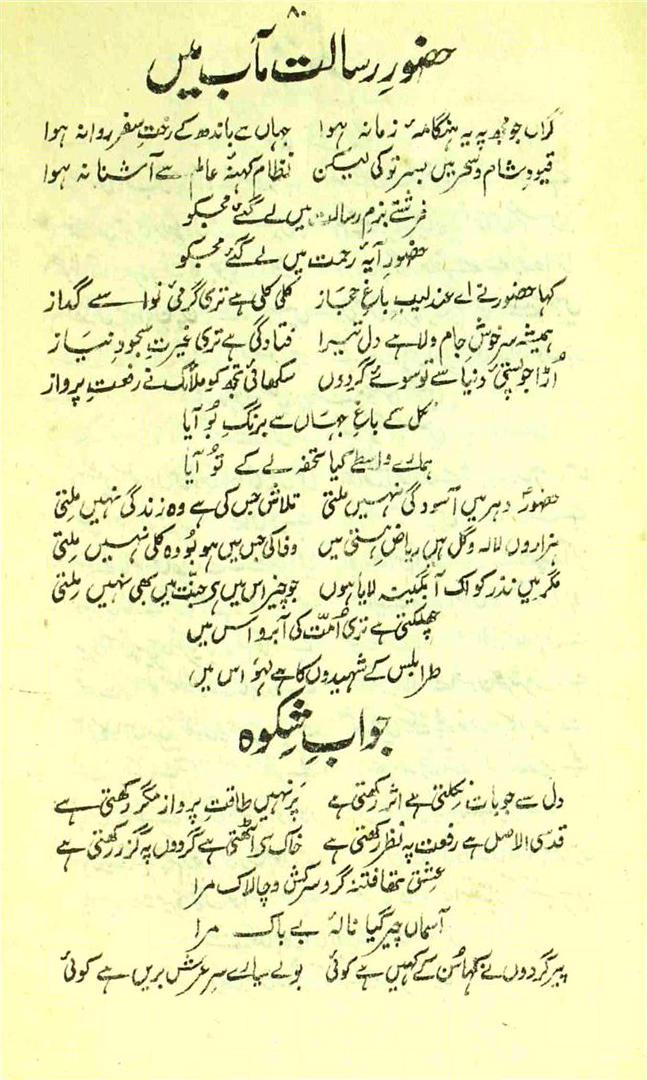 ۸۰
حضورِ رسالت مآب میں
گراں جو مجھ پہ یہ ہنگامۂ زمانہ ہوا جہاں سے باندھ کے رختِ سفر روانہ ہوا
قیودِ شام و سحر میں بسر تو کی لیکن نظامِ کہنۂ عالم سے آشنا نہ ہوا
فرشتے بزمِ رسالت میں لے گئے مجکو
حضورِ آیۂ رحمت میں لے گئے مجکو
کہا حضور نے اے عندلیبِ باغِ حجاز کلی کلی ہے تری گرمیٔ نوا سے گداز
ہمیشہ سرخوشِ جامِ ولا ہے دل تیرا فتادگی ہے تری غیرتِ سجودِ نیاز
اُڑا جو پستیٔ دنیا سے تو سوئے گردوں سکھائی تجھ کو ملائک نے رفعتِ پرواز
نکل کے باغِ جہاں سے برنگِ بُو آیا
ہمارے واسطے کیا تحفہ لے کے تُو آیا
حضورؐ دہر میں آسودگی نہیں ملتی تلاش جس کی ہے وہ زندگی نہیں ملتی
ہزاروں لالہ و گل ہیں ریاضِ ہستی میں وفا کی جس میں ہو بُو وہ کلی نہیں ملتی
مگر میں نذر کو اک آبگینہ لایا ہوں جو چیز اس میں ہے جنّت میں بھی نہیں ملتی
جھلکتی ہے تری اُمّت کی آبرو اس میں
طرابلس کے شہیدوں کا ہے لہو اس میں
جوابِ شکوہ
دل سے جو بات نکلتی ہے اثر رکھتی ہے پَر نہیں طاقتِ پرواز مگر رکھتی ہے
قدسی الاصل ہے رفعت پہ نظر رکھتی ہے خاک سے اُٹھتی ہے گردوں پہ گزر رکھتی ہے
عشق تھا فتنہ گر و سرکش و چالاک مرا
آسماں چیر گیا نالۂ بے باک مرا
پیرِ گردوں نے کہا سُن کے کہیں ہے کوئی بولے سیارے سرِ عرشِ بریں ہے کوئی